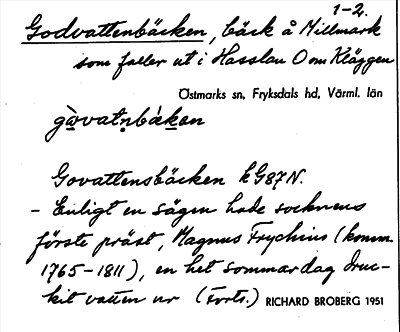 1-2.
Godvattenbäcken, bäck å Millmark
som faller ut i Hasslan O om Kläggen
Östmarks sn, Fryksdals hd, Värml. län
gòvatnbäkan
Govattensbäcken kG87N.
- Enligt en sägen hade socknens
förste präst, Magnus Frychius (komm.
1765-1811), en het sommardag druc-
kit vatten ur (Forts.) RICHARD BROBERG 1951